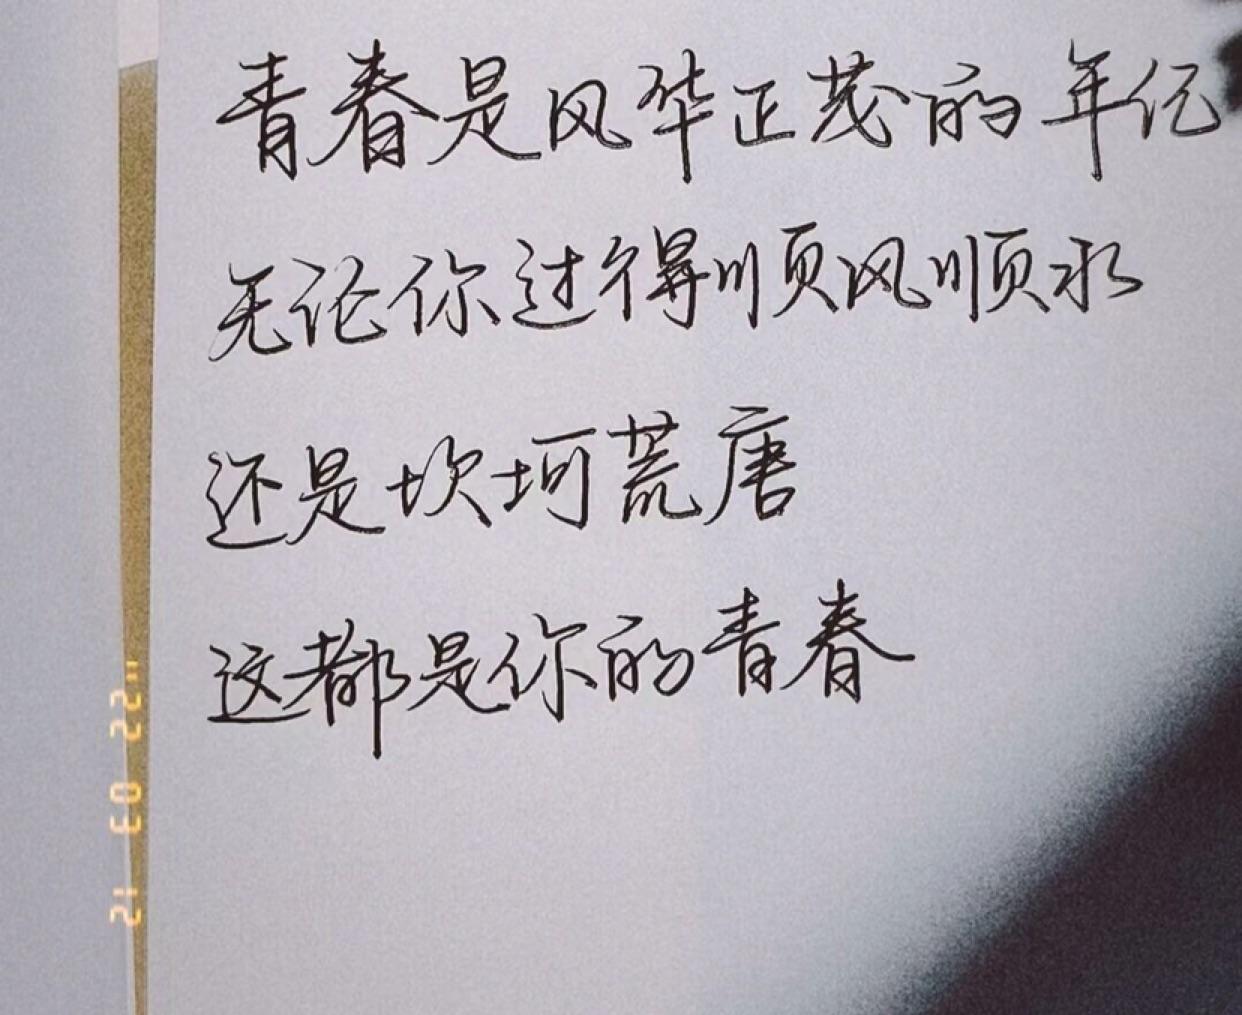 青春是风华正茂的年纪
无论你过得顺风顺水
还是坎坷荒唐
这都是你的青春
"22 03 12